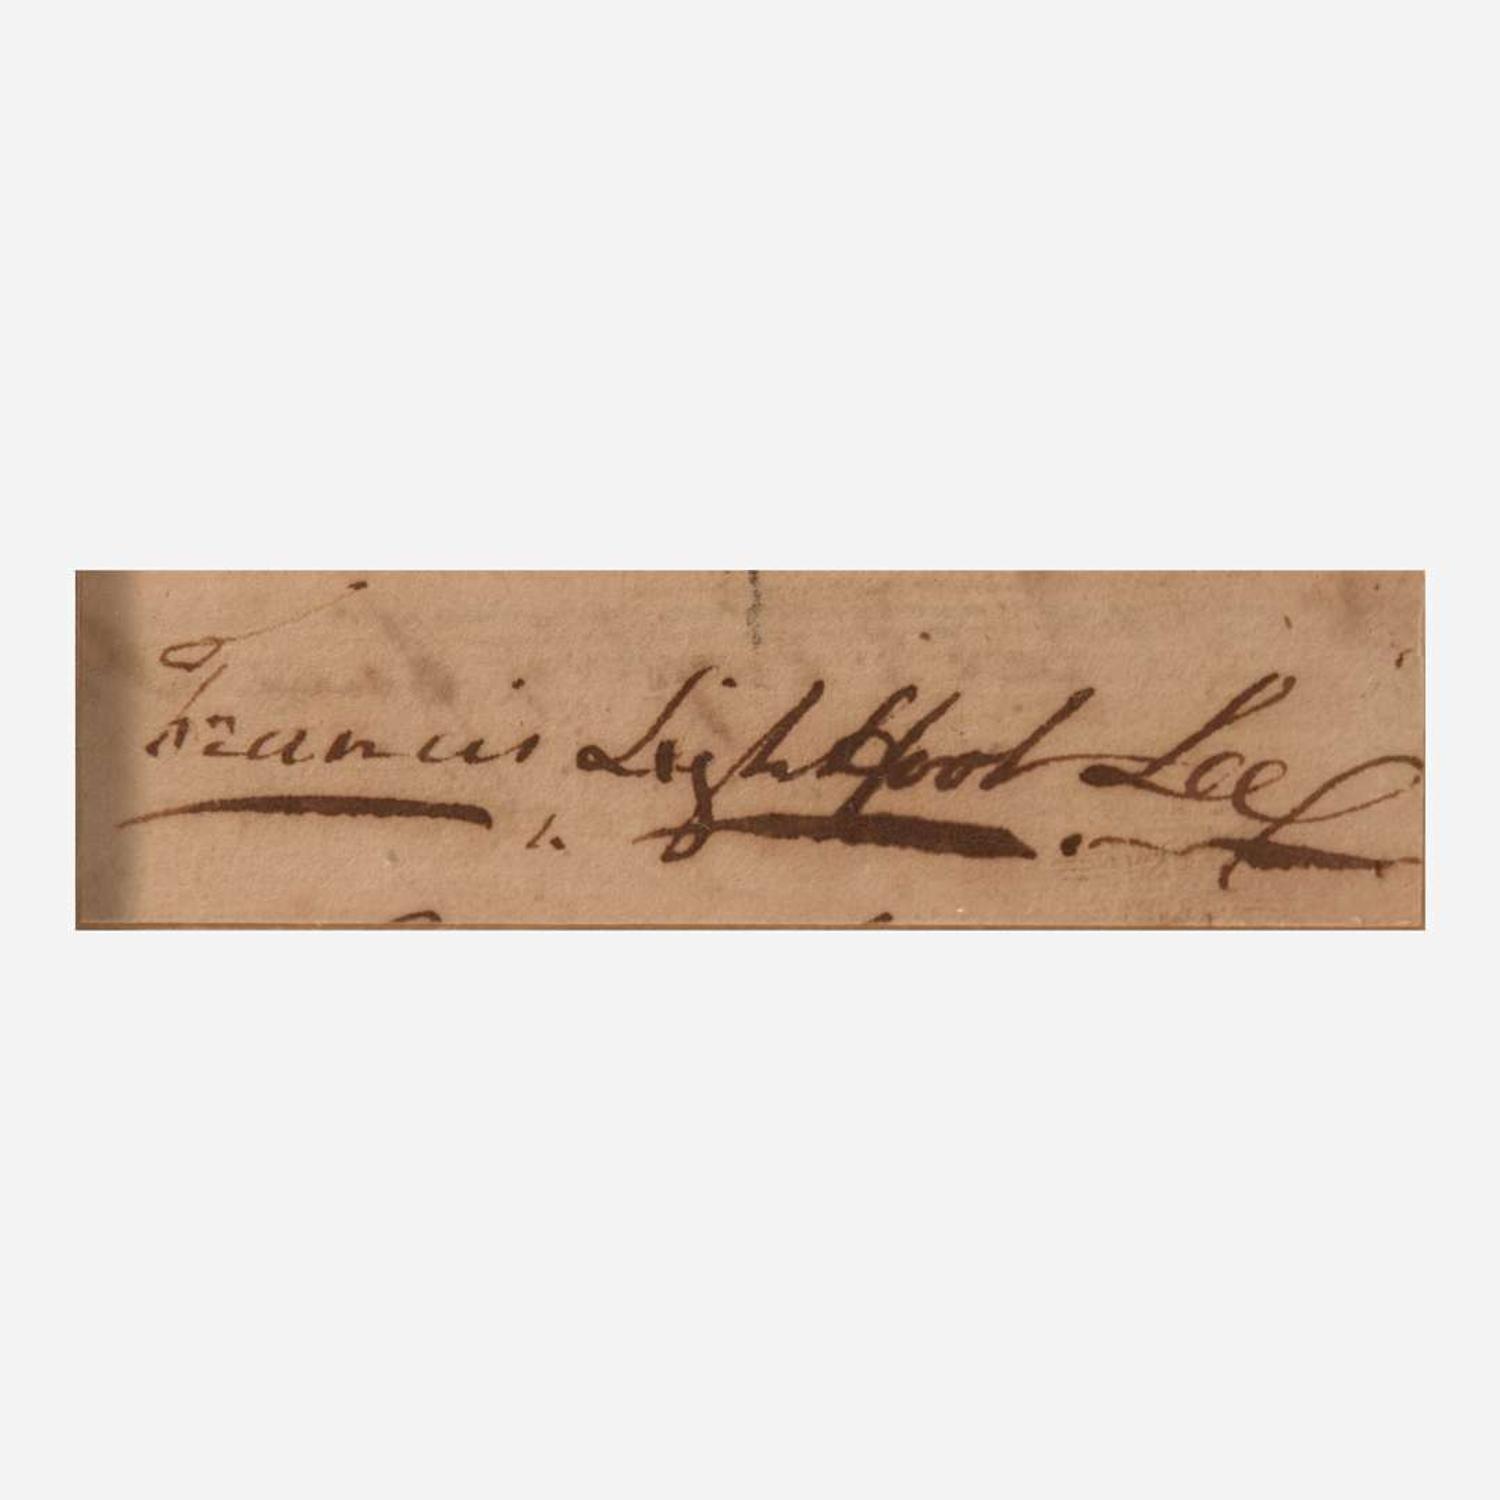 Francis Lightfoot Lee